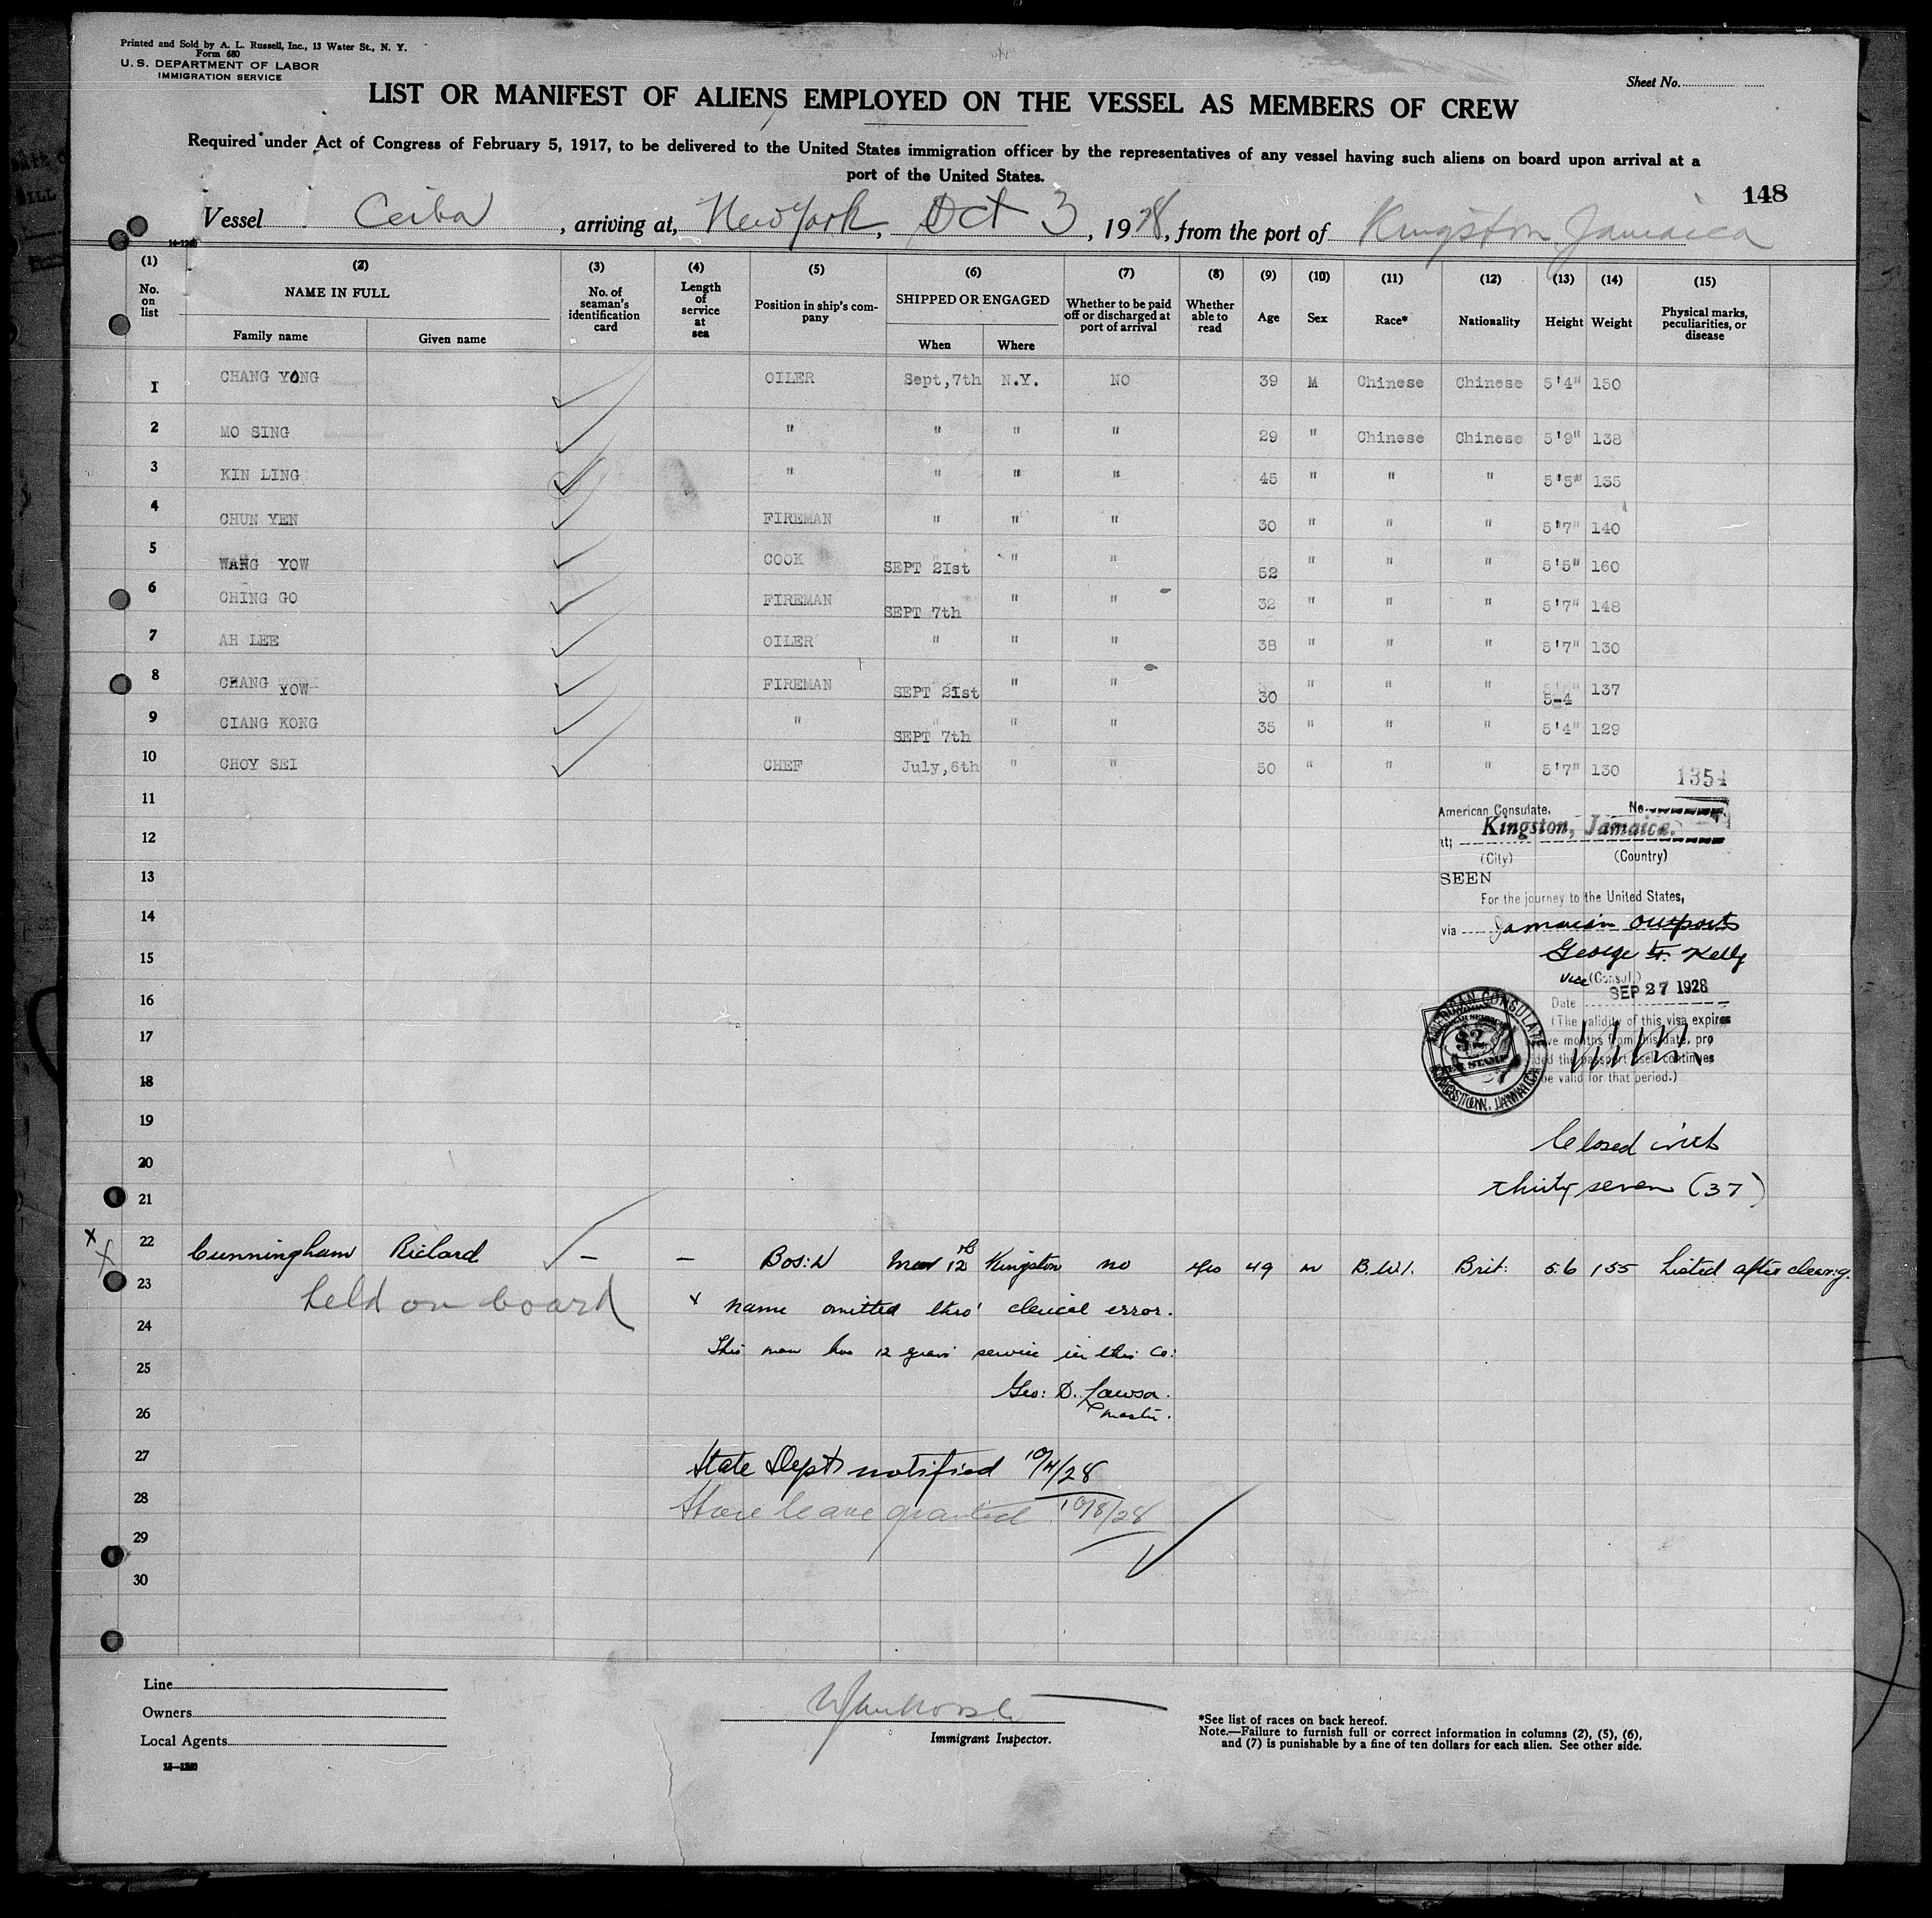 Printed and Sold by A. L. Russell, Inc., 13 Water St., N. Y.
Form 680
U. S. DEPARTMENT OF LABOR
IMMIGRATION SERVICE
Sheet No.
LIST OR MANIFEST OF ALIENS EMPLOYED ON THE VESSEL AS MEMBERS OF CREW
Required under Act of Congress of February 5, 1917, to be delivered to the United States immigration officer by the representatives of any vessel having such aliens on board upon arrival at a
port of the United States.
148
Vessel Ceiba, arriving at, New York, Oct 3, 1928, from the port of Kingston Jamaica
(1) (2) (3) (4) (5) (6) (7) (8) (9) (10) (11) (12) (13) (14) (15)
No. on list NAME IN FULL Family name Given name No. of seaman's identification card Length of service at sea Position in ship's company SHIPPED OR ENGAGED When Where Whether to be paid off or discharged at port of arrival Whether able to read Age Sex Race* Nationality Height Weight Physical marks, peculiarities, or disease
1 CHANG YONG OILER Sept,7th N.Y. NO 39 M Chinese Chinese 5'4" 150
2 MO SING " " " " 29 " Chinese Chinese 5'9" 138
3 KIN LING " " " " 45 " " " 5'5" 135
4 CHUN YEN FIREMAN " " " 30 " " " 5'7" 140
5 WANG YOW COOK SEPT 21st " " 52 " " " 5'5" 160
6 CHING GO FIREMAN SEPT 7th " " 32 " " " 5'7" 148
7 AH LEE OILER " " " 38 " " " 5'7" 130
8 CHANG YOW FIREMAN SEPT 21st " " 30 " " " 5-4 137
9 CIANG KONG " SEPT 7th " " 35 " " " 5'4" 129
10 CHOY SEI CHEF July,6th " " 50 " " " 5'7" 130
1354
11
American Consulate, No.
Kingston, Jamaica.
12
(City) (Country)
13
SEEN
For the journey to the United States,
14
via Jamaican Outports
15
George F. Kelly
Vice (Consul)
16
Date SEP 27 1928
(The validity of this visa expires
17
ve months from this date, pro
ded the passport self continues
18
be valid for that period.)
AMERICAN CONSULATE
$2
FEE STAMP
KINGSTON, JAMAICA
19
Closed with
20
thirty seven (37)
21
x 22 Cunningham Richard - - Bos:N 12th Kingston no yes 49 m B.W.I. Brit: 5.6 155 Listed after clearing.
23 held on board x name omitted thro' clerical error.
24
This man has 12 years service in this Co:
25
Geo: D. Lawson.
26
Master.
27 State Dept notified 10/4/28
28 Shore leave granted 10/8/28
29
30
Line
Owners
Local Agents
Immigrant Inspector.
*See list of races on back hereof.
Note.—Failure to furnish full or correct information in columns (2), (5), (6),
and (7) is punishable by a fine of ten dollars for each alien. See other side.